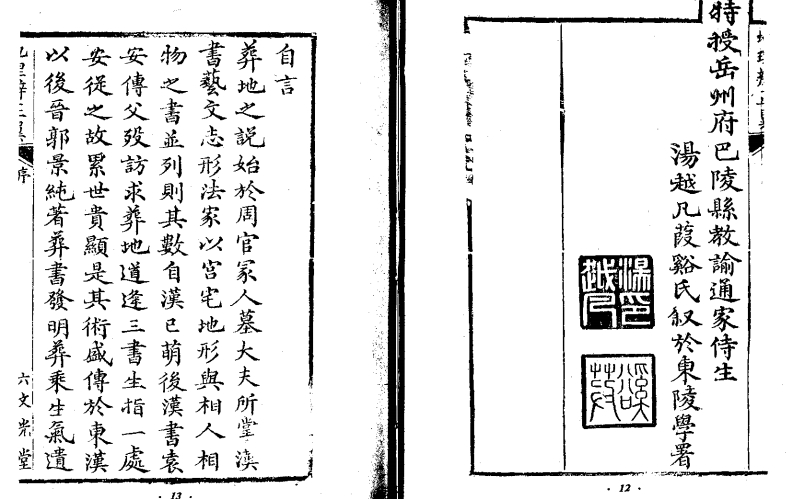 特授岳州府巴陵縣教諭通家侍生
湯越凡葭谿氏叙於東陵學署
· 12 ·
自言
葬地之説始於周官冢人墓大夫所掌漢
書藝文志形法家以宮宅地形與相人相
物之書並列則其數自漢已萌後漢書袁
安傳父歿訪求葬地道逢三書生指一處
安從之故累世貴顯是其術盛傳於東漢
以後晉郭景純著葬書發明葬乘生氣遺
序
六文堂
· 13 ·